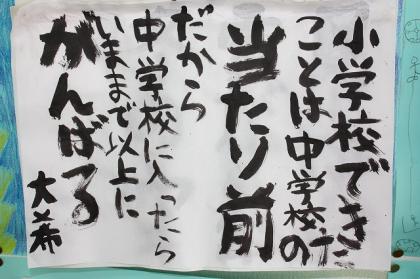 小学校できた
ことは中学校の
当たり前
だから
中学校に入ったら
いままで以上に
がんばる
大希